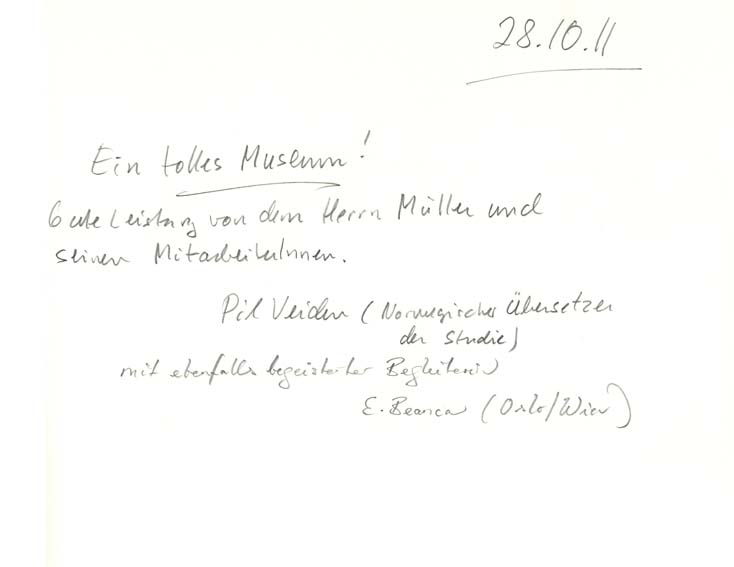 28.10.11
Ein tolles Museum!
Gute Leistung von dem Herrn Müller und
seinen MitarbeiterInnen.
Pil Veiden (Norwegischer Übersetzer
der Studie)
mit ebenfalls begeisterter Begleiterin
E. (Oslo/Wien)